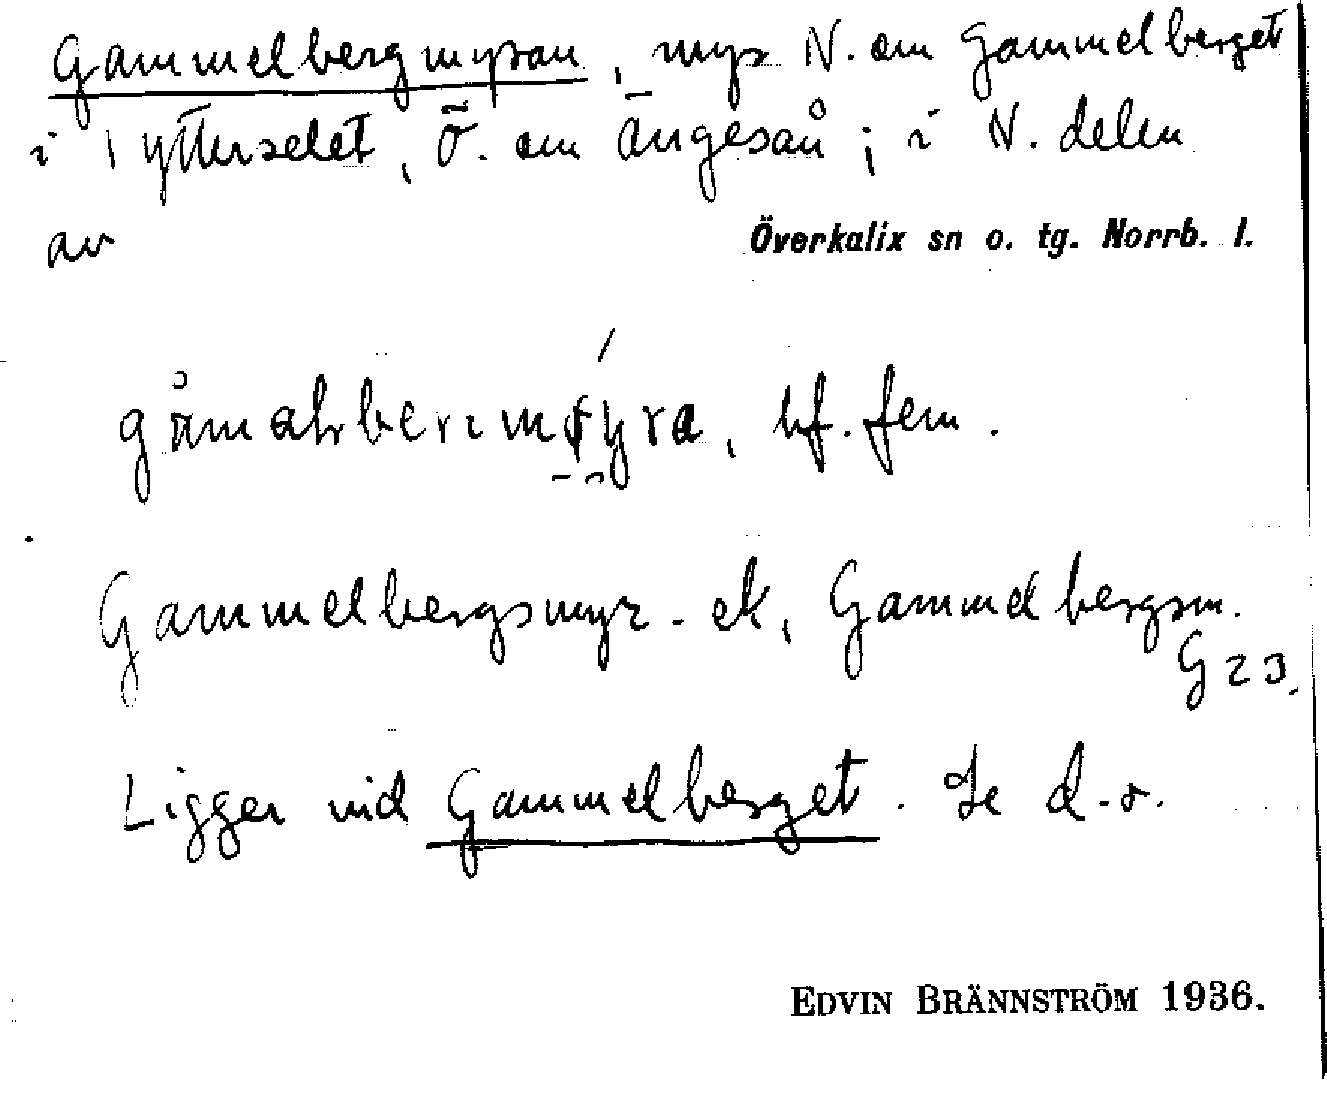 Gammelbergmyran, myr N. om Gammelberget
i Ytterselet, Ö. om Ängesån; i N. delen
av Överkalix sn o. tg. Norrb. l.
bf. fem.
Gammelbergsmyr - ek, Gammelbergsm.
G 23.
Ligger vid Gammelberget. Se d. o.
EDVIN BRÄNNSTRÖM 1936.